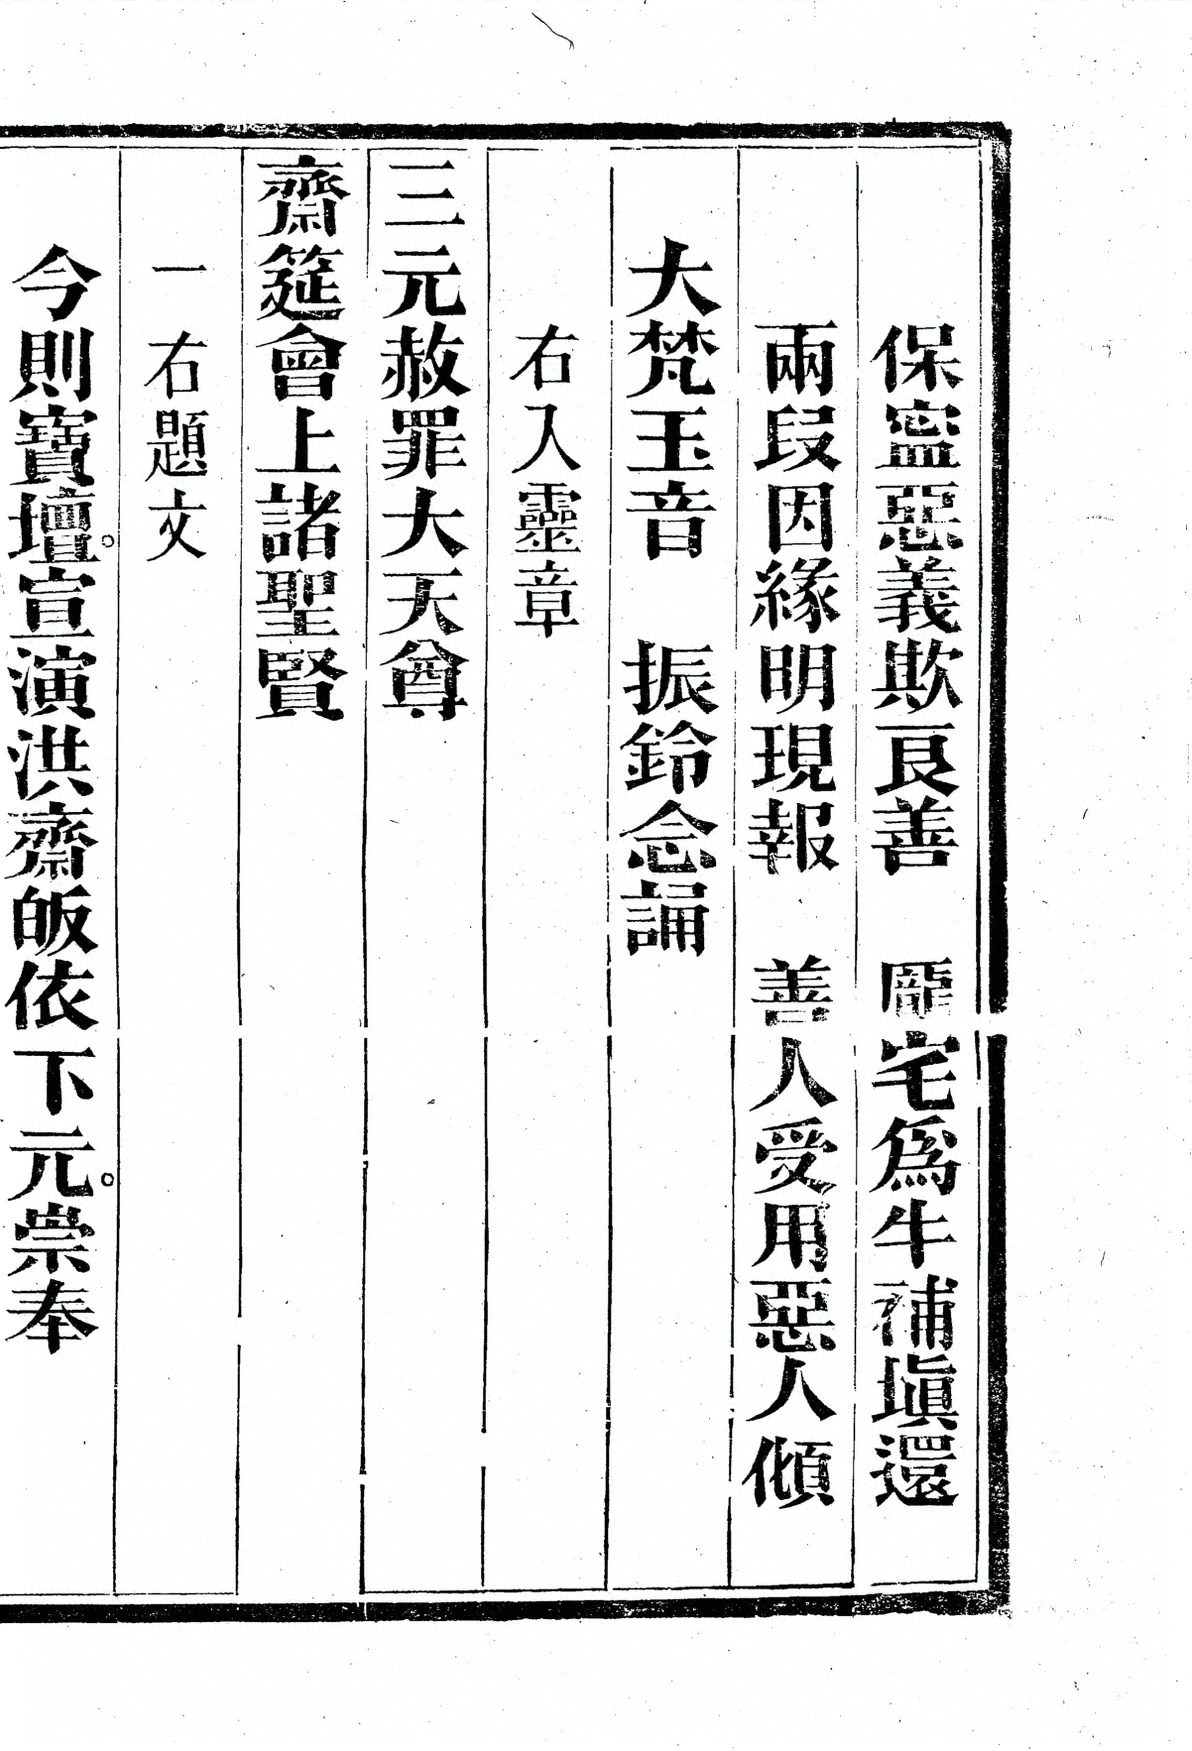 保寍惡義欺良善　龎宅爲牛補塡還
兩段因緣明現報　善人受用惡人傾
大梵玉音　振鈴念誦
右入靈章
三元赦罪大天尊
齋筵會上諸聖賢
一　右題文
今則寶壇。宣演洪齋皈依下元。崇奉